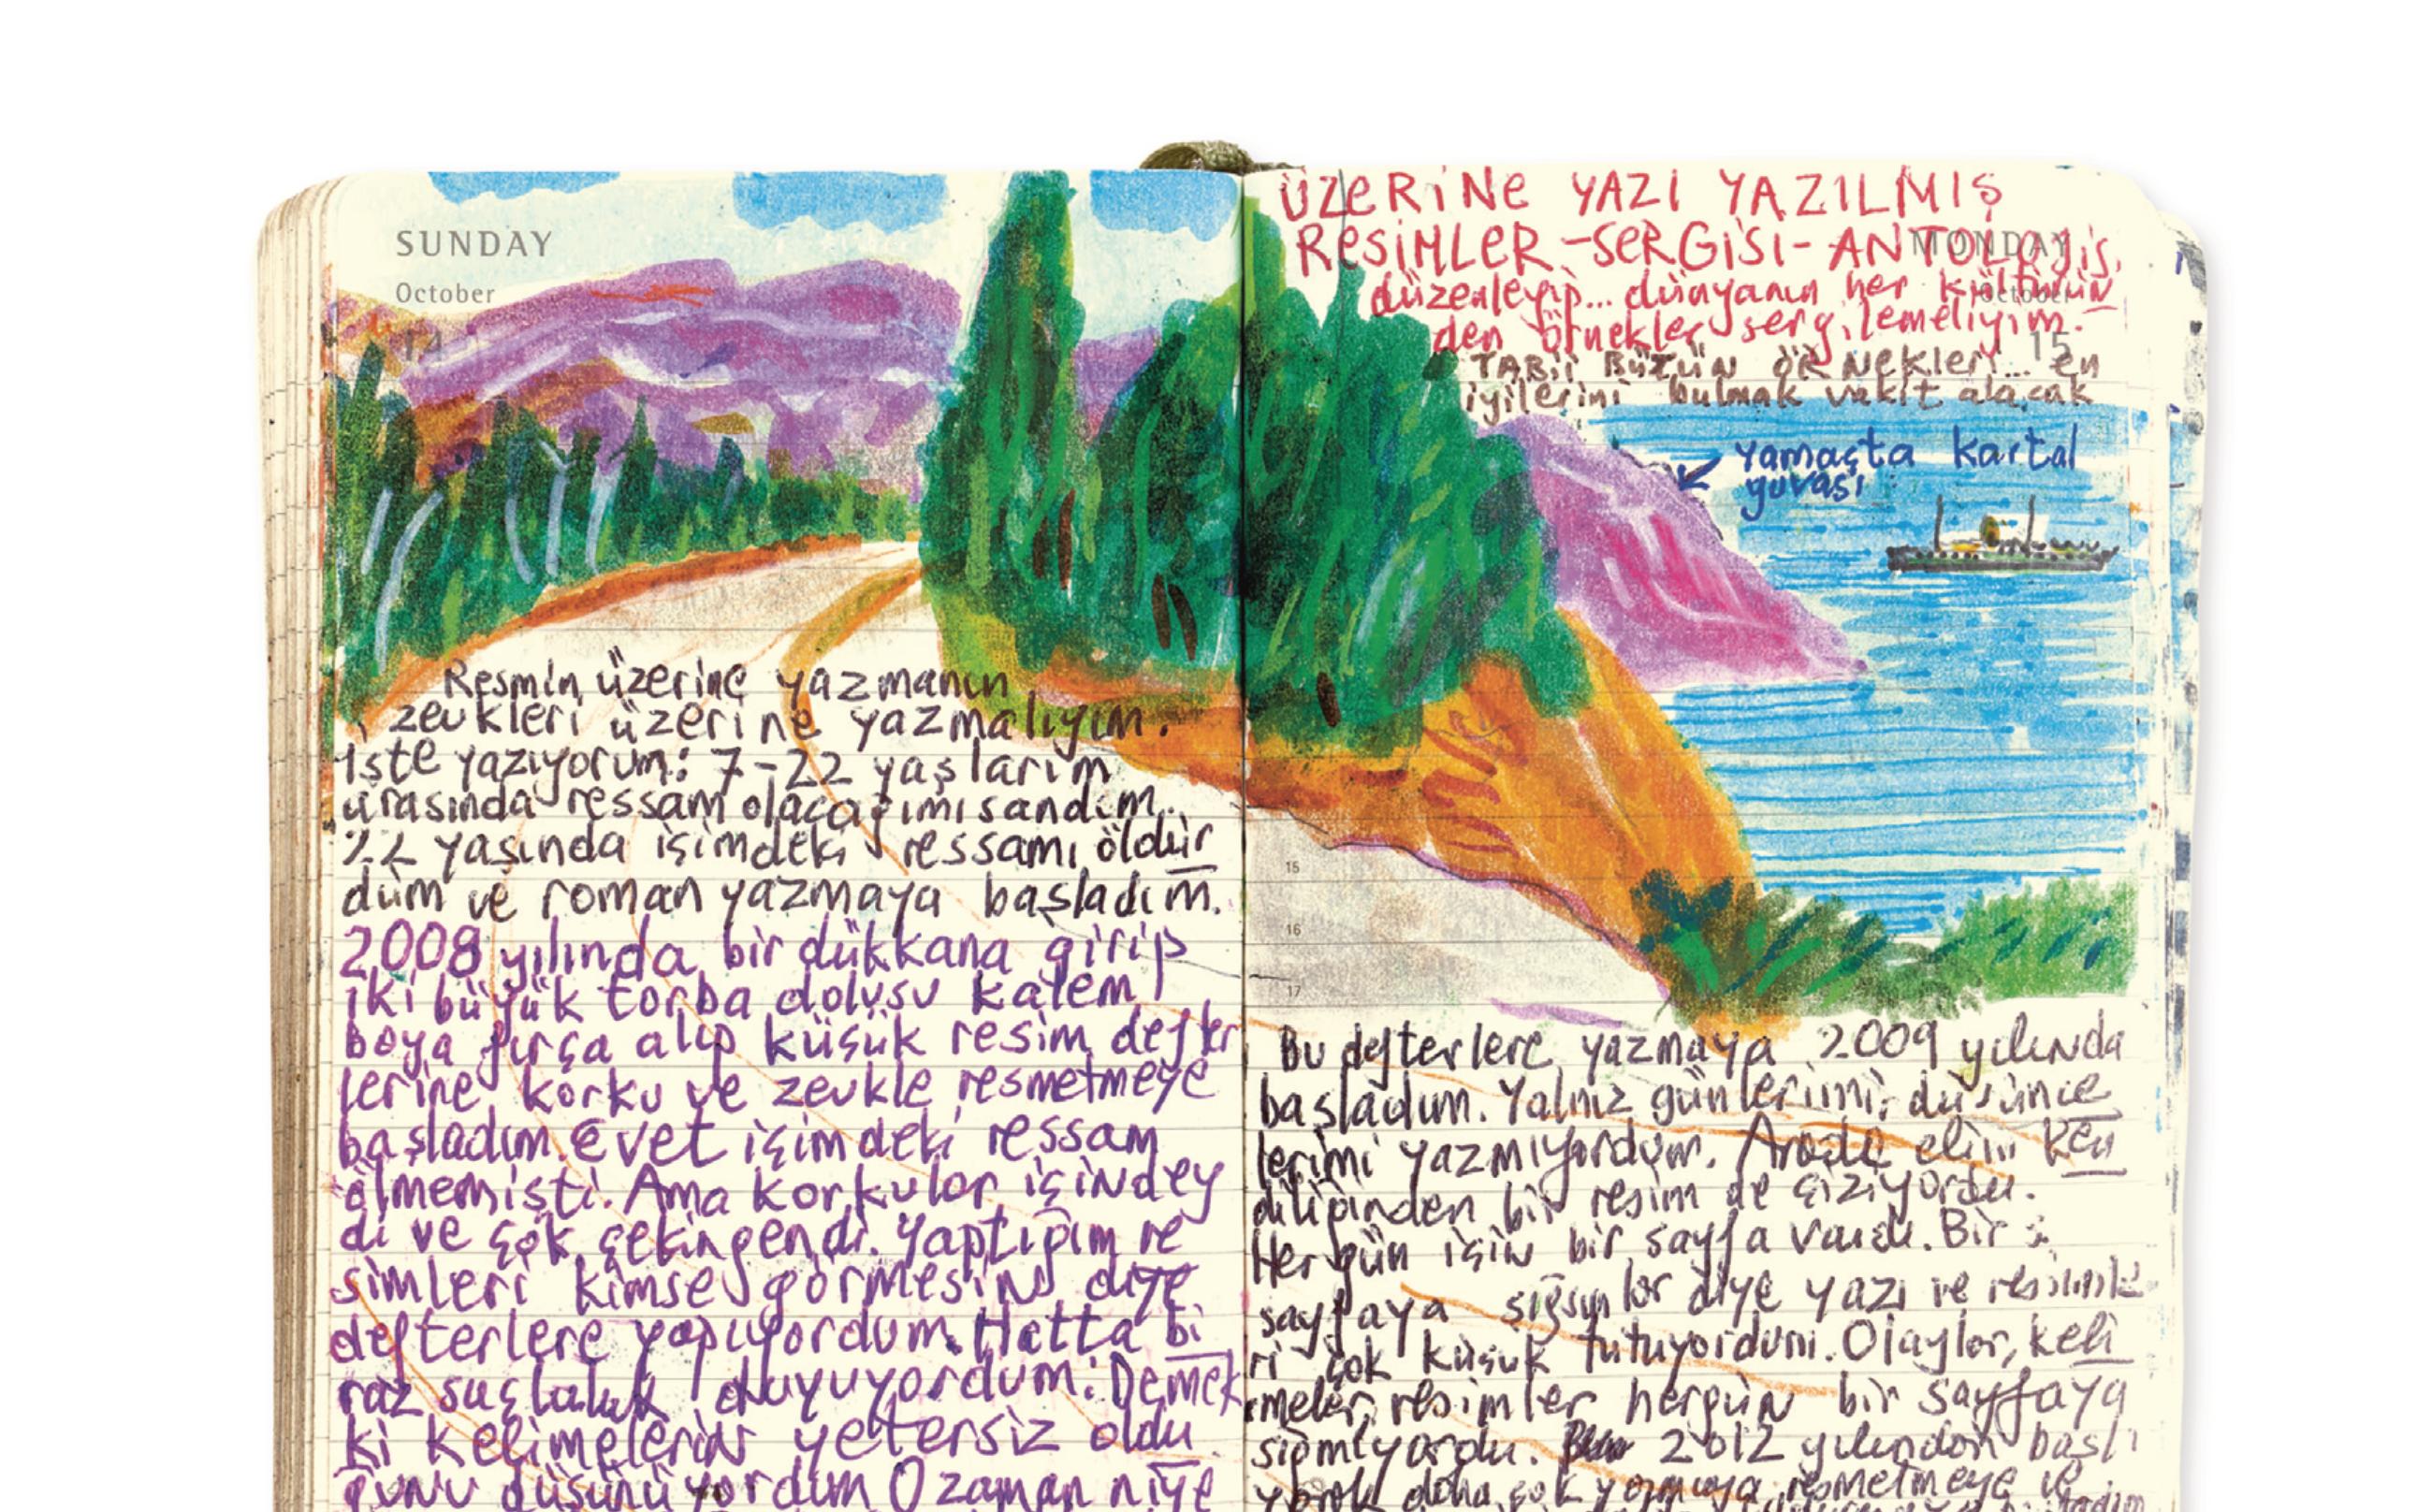 SUNDAY
October
14
Resmin üzerine yazmanın
zevkleri üzerine yazmalıyım.
İşte yazıyorum: 7-22 yaşlarım
arasında ressam olacağımı sandım.
22 yaşında içimdeki ressamı öldür
düm ve roman yazmaya başladım.
2008 yılında bir dükkana girip
iki büyük torba dolusu kalem
boya fırça alıp küçük resim defter
lerine korku ve zevkle resmetmeye
başladım. Evet içimdeki ressam
ölmemişti. Ama korkular içindey
di ve çok çekingendi. Yaptığım re
simleri kimse görmesin diye
defterlere yapıyordum. Hatta bi
raz suçluluk duyuyordum: Demek
ki kelimelerin yetersiz oldu
ğunu düşünüyordum O zaman niye
ÜZERİNE YAZI YAZILMIŞ
RESİMLER -SERGİSİ- ANTOLOJİSİ
MONDAY
düzenleyip... dünyanın her kültürün
October
den örnekler sergilemeliyim.
15
TABİİ BÜTÜN ÖRNEKLERİ... en
iyilerini bulmak vakit alacak
yamaçta kartal
yuvası
15
16
17
Bu defterlere yazmaya 2009 yılında
başladım. Yalnız günlerimi, düşünce
lerimi yazmıyordum. Arada elim ken
diliğinden bir resim de çiziyordu.
Her gün için bir sayfa vardı. Bir
sayfaya sığsınlar diye yazı ve resimle
ri çok küçük tutuyordum. Olaylar, keli
meler, resimler hergün bir sayfaya
sığmıyordu. 2012 yılından başlı
yarak daha çok yazmaya resmetmeye ve